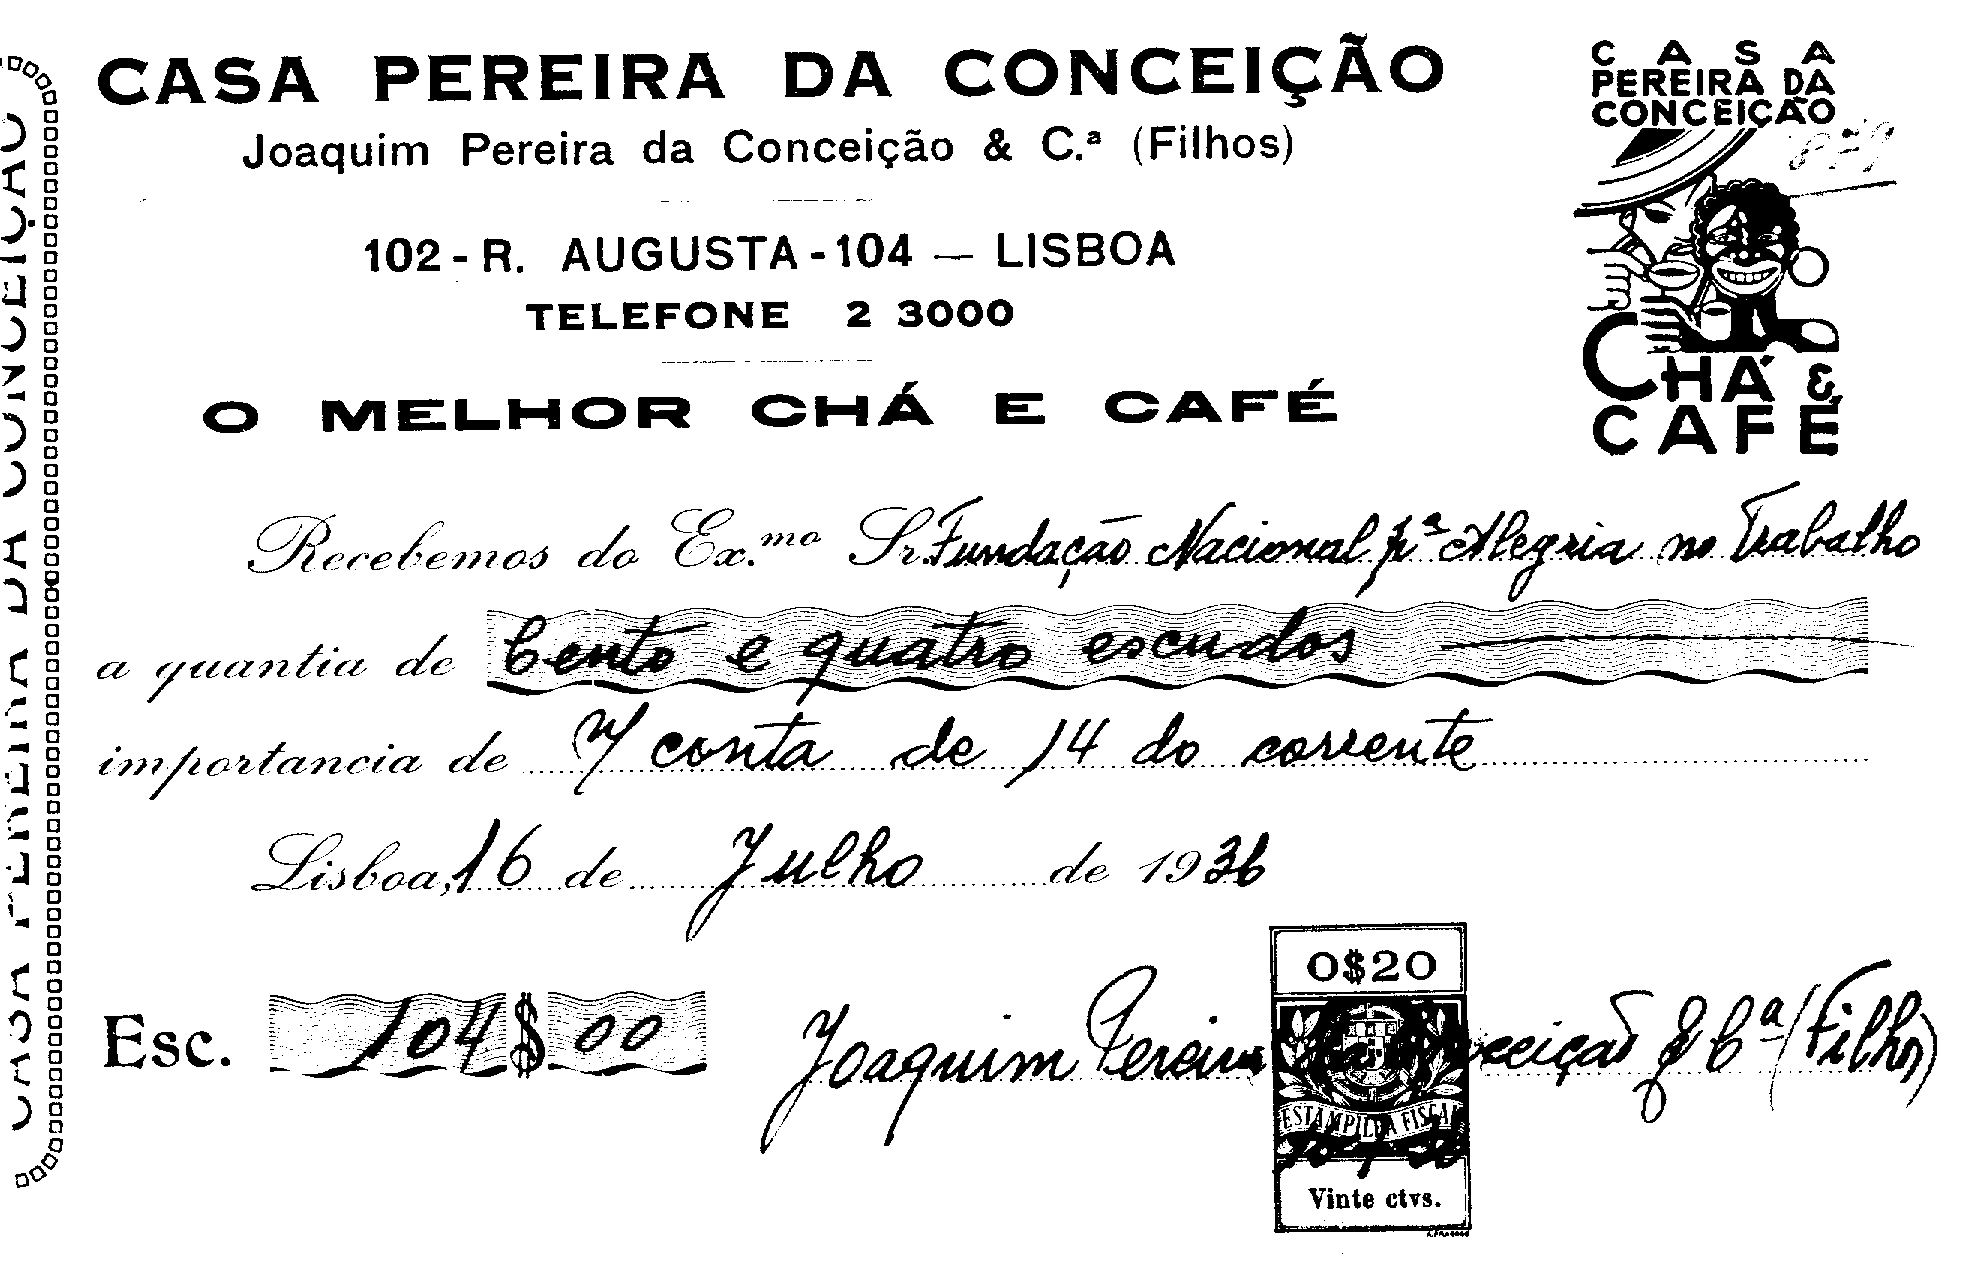 CASA PEREIRA DA CONCEIÇÃO
Joaquim Pereira da Conceição & C.ª (Filhos)
102 - R. AUGUSTA - 104 — LISBOA
TELEFONE 2 3000
O MELHOR CHÁ E CAFÉ
CASA
PEREIRA DA
CONCEIÇÃO
CHÁ &
CAFÉ
Recebemos do Ex.mo Sr. Fundação Nacional pª Alegria no Trabalho
a quantia de Cento e quatro escudos
importancia de n/ conta de 14 do corrente
Lisboa, 16 de Julho de 1936
Esc. 104$00
Joaquim Pereira da Conceição & Cª (Filhos)
0$20
ESTAMPILHA FISCAL
Vinte ctvs.
CASA PEREIRA DA CONCEIÇÃO